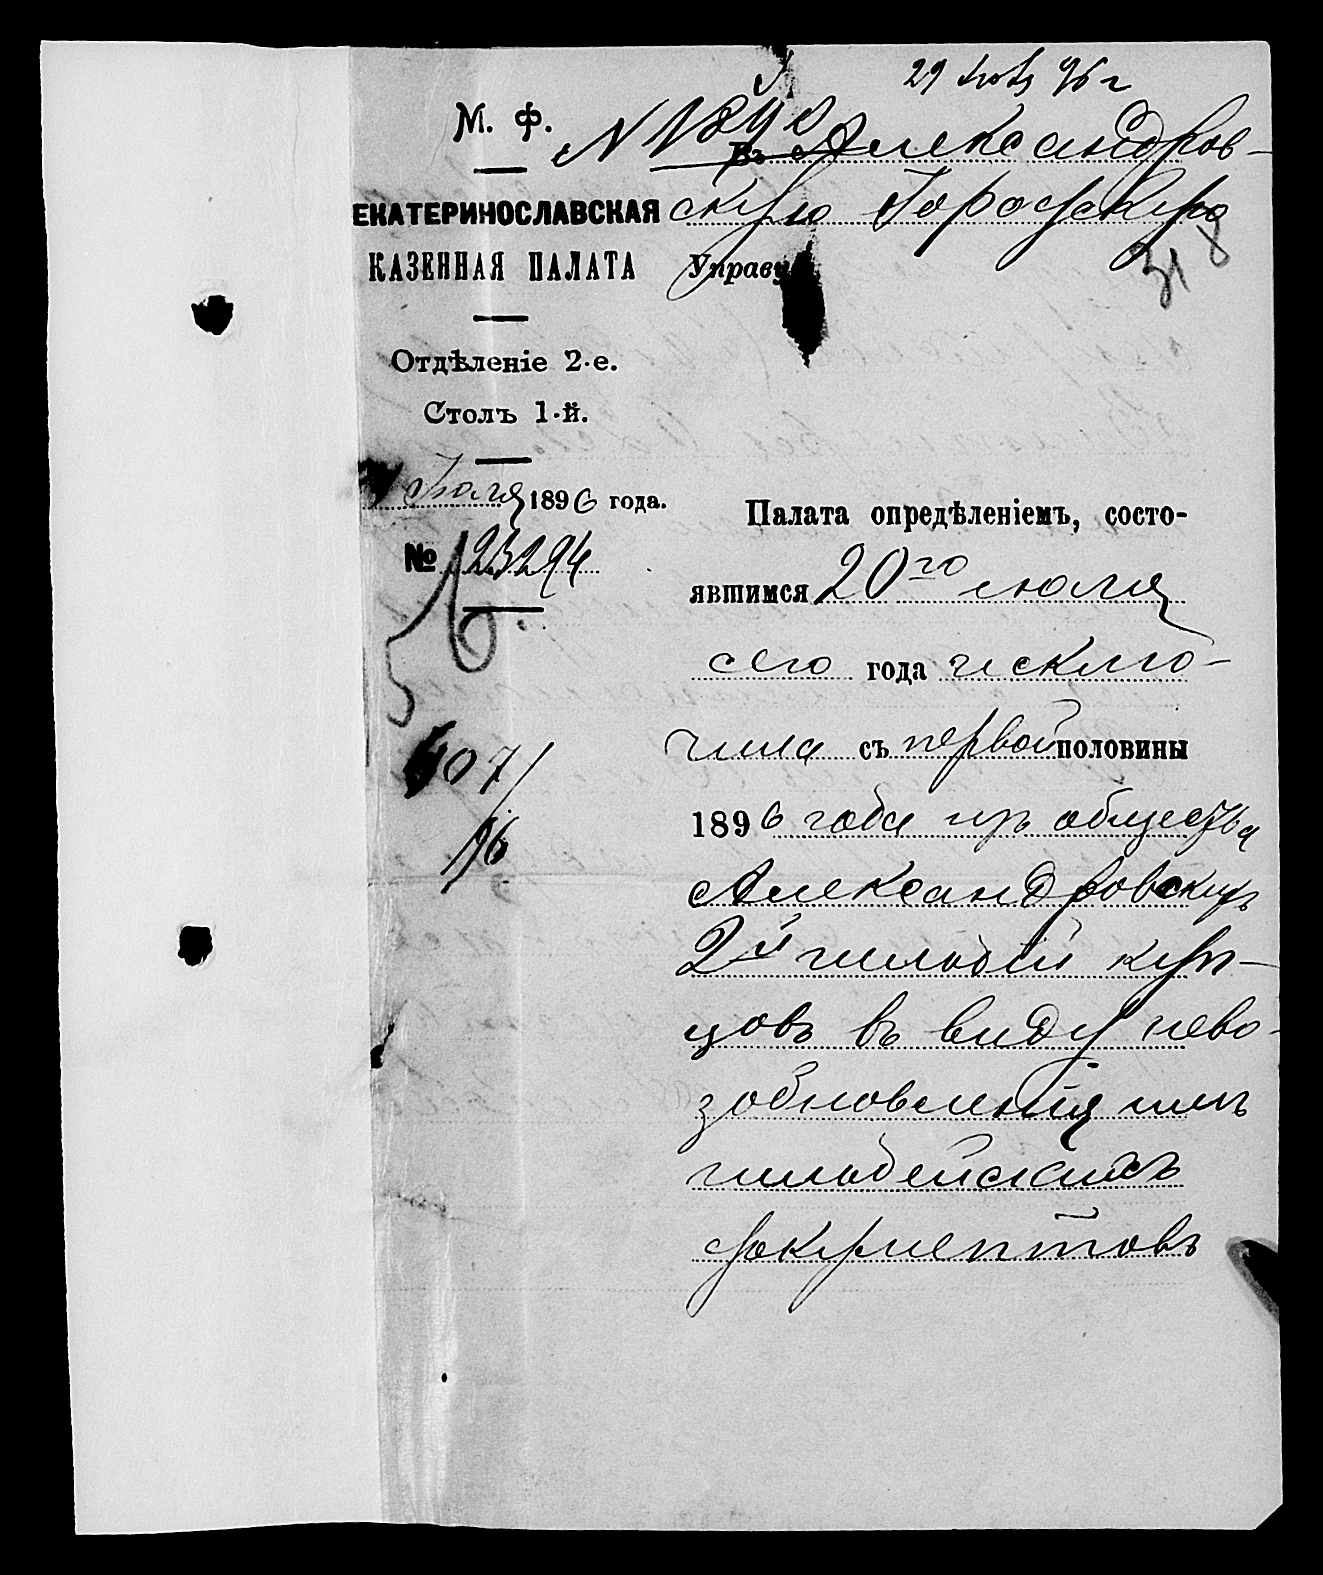 29 Июля 96 г
М. Ф.
N 1842
Въ Александров-
ЕКАТЕРИНОСЛАВСКАЯ
скую Городскую
КАЗЕННАЯ ПАЛАТА
Управу
318
Отдѣленіе 2-е.
Столъ 1-й.
Июля 1896 года.
№ 23294
407/96
Палата опредѣленіемъ, состо-
явшимся 20го июля
сего года исклю-
чила съ первой половины
1896 года изъ общества
Александровскихъ
2й гильдіи куп-
цовъ въ виду нево-
зобновленія ими
гильдейскихъ
документовъ